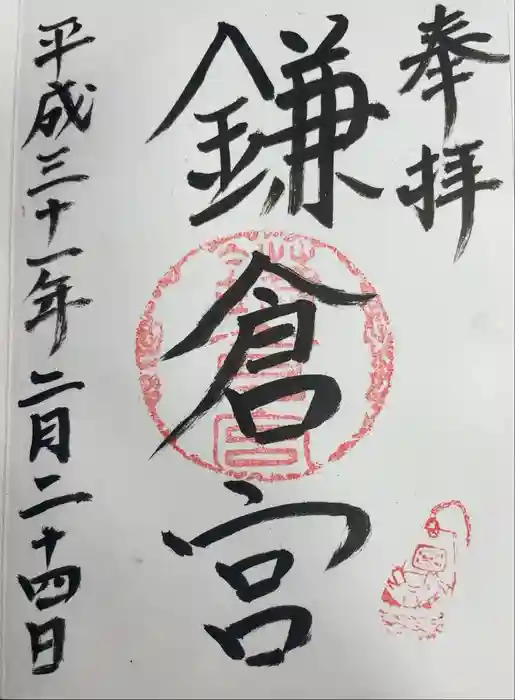 奉拝
鎌倉宮
平成三十一年二月二十四日